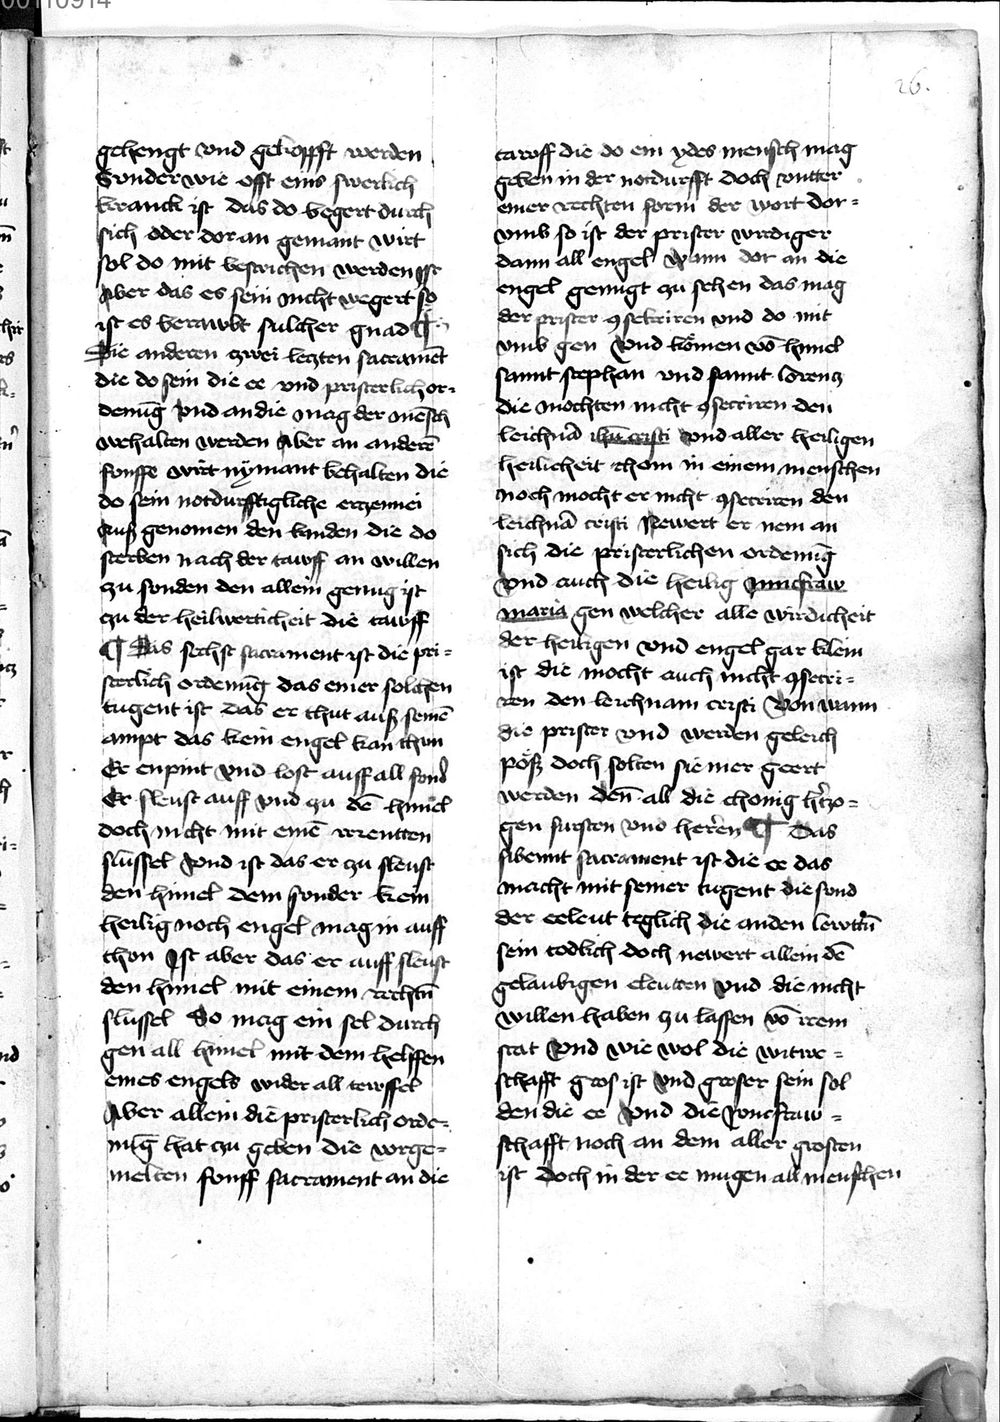 00110914
26.
gehengt vnd gekopfft werden
Sunder wie offt eins swerlich
kranck ist das do begert durch
sich oder dor an gemant wirt
sol do mit bestrichen werden ist
Aber das es sein nicht wegert so
ist es beraubt sulcher gnad ¶
Die anderen zwei leczten sacramēt
die do sein die ee vnd pristerlich or-
denūg vnd an die mag der mēsch
wehalten werden Aber an anderē
fonffe wirt nymant behalten die
do sein notdurfftigliche erczennei
auß genomen den kinden die do
sterben nach der tauff an willen
zu sonden den allein genug ist
zu der heilwerticheit die tauff
¶ Das sechst sacrament ist die pri-
sterlich ordenūg das einer solchen
tugent ist das er thut auß seinē
ampt das kein engel kan thun
Er enpint vnd lost auff all sond
Er sleust auff vnd zu dē himel
doch nicht mit einē
slussel vnd ist das er zu sleust
den himel dem sonder kein
heilig noch engel mag in auff
thon Ist aber das er auff sleust
den himel mit einem rechtñ
slussel So mag ein sel durch
gen all himel mit dem helffen
eines engels wider all teuffel
Aber allein die pristerlich orde-
nūg hat zu geben die vorge-
melten fonff sacrament an die
tauff die do ein ydes mensch mag
geben in der notdurfft doch vntter
einer rechten form der wort dor-
vmb so ist der prister wirdiger
dann all engel Wann dor an die
engel genugt zu sehen das mag
der prister ꝯsekriren vnd do mit
vmb gen Vnd kömen võ himel
sannt stephan vnd sannt lorencz
die mochten nicht ꝯsecriren den
leichnā ihū cristi vnd aller heiligen
heilicheit chom in einem menschen
noch mocht er nicht ꝯsecriren den
leichnā cristi Newert er nem an
sich die pristerlichen ordenūg
vnd auch die heilig junckfraw
maria gen welcher alle wirdicheit
der heiligen vnd engel gar klein
ist die mocht auch nicht ꝯsecri-
ren den leichnam cristi Von wann
die prister vnd werden geleich
pöß doch solten sie mer geert
werden den̄ all die chonig hřczo-
gen fursten vnd heren ¶ Das
sibennt sacrament ist die ee das
macht mit seiner tugent die sond
der eeleut teglich die anden
sein todlich doch newert allein dē
gelaubigen eleutten vnd die nicht
willen haben zu lassen võ irem
stat Vnd wie wol die witwe-
schafft gros ist vnd groser sein sol
den die ee Vnd die Junckfraw-
schafft noch an dem aller grosten
ist Doch in der ee mugen all menschen